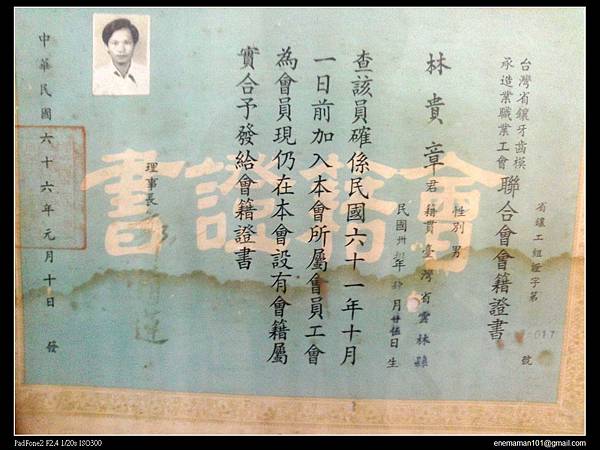 台灣省鑲牙齒模
承造業職業工會
聯合會會籍證書
省鑲工組證字第
017號
林貴章君
性別 男
籍貫 臺灣省雲林縣
民國卅年月廿伍日生
查該員確係民國六十一年十月
一日前加入本會所屬會員工會
為會員現仍在本會設有會籍屬
實合予發給會籍證書
理事長
中華民國六十六年元月十日發
會籍證書
PadFone2 F2.4 1/20s ISO300
enemaman101@gmail.com